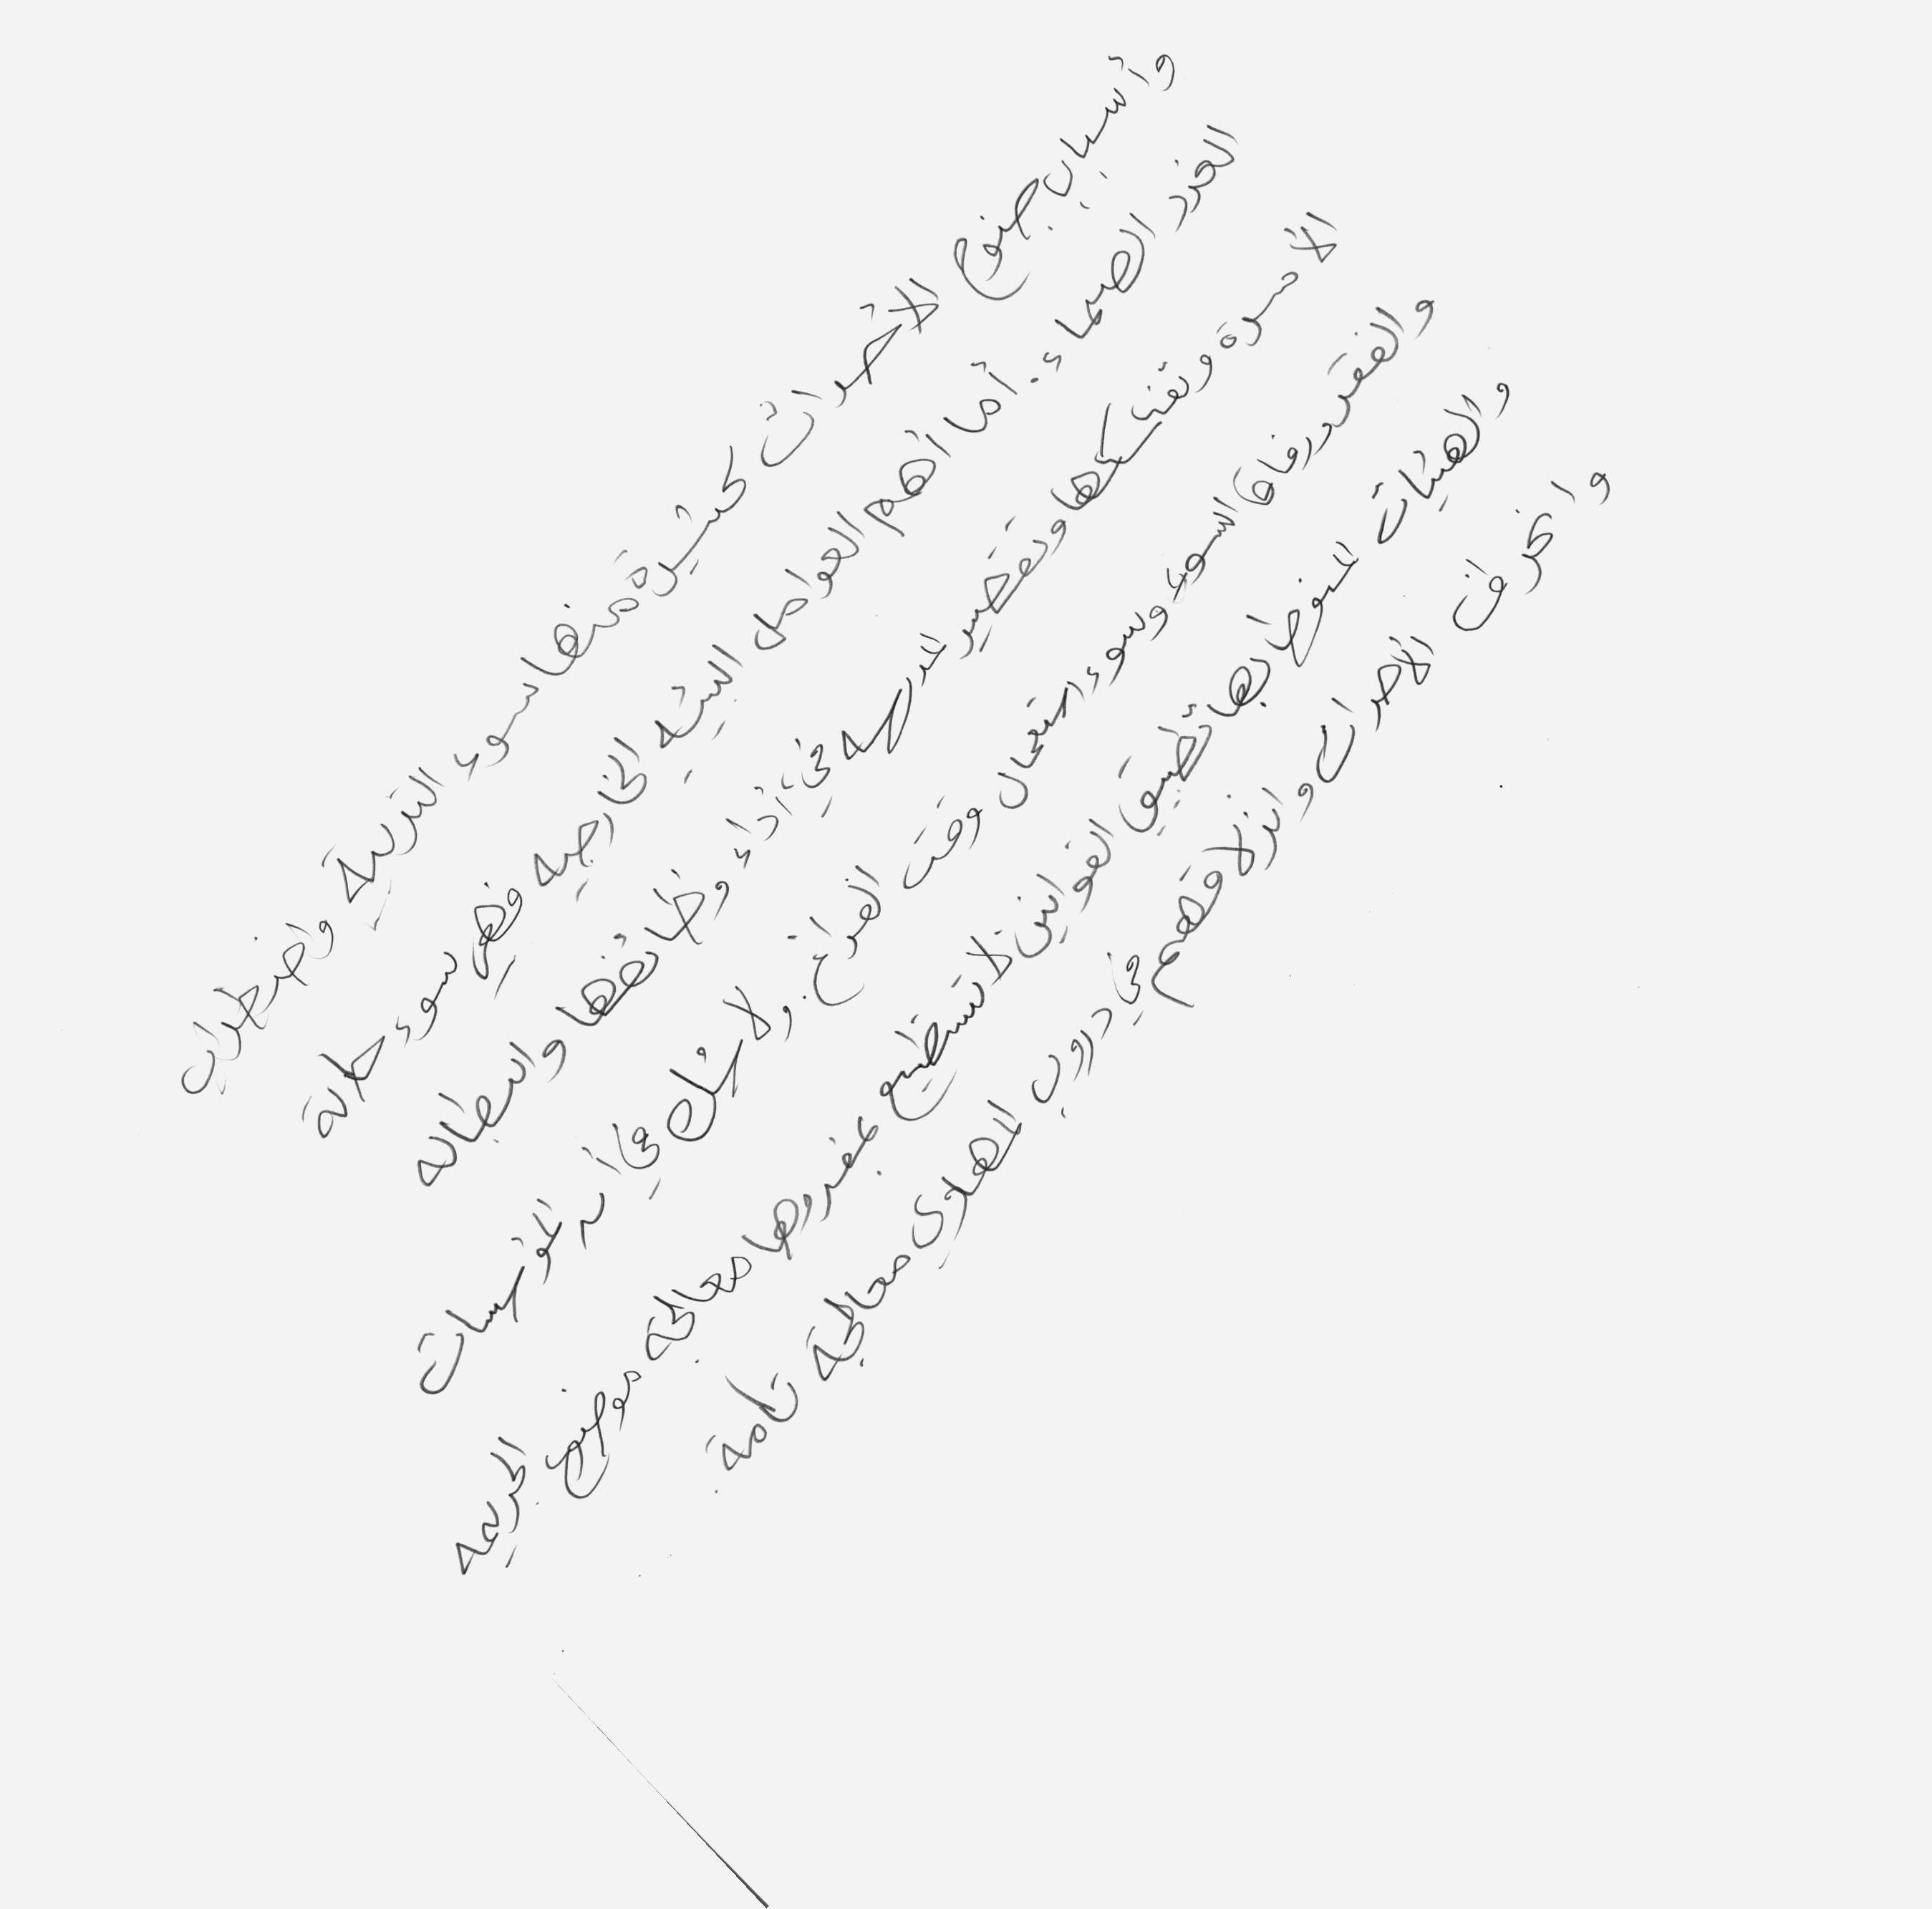 وأسباب جنوح الأحداث كثيرة منها سوء التربية واضطراب
الغدد الصماء. أما أهم العوامل البيئيه الخارجيه فهي سوء حالة
الأسرة وتفككها وتقصير المدرسه في أداء وظائفها والبطاله
والفقر ورفاق السوء وسوء استغلال وقت الفراغ. ولا شك في أن المؤسسات
والهيئات المنوط بها تطبيق القوانين لا تستطيع بمفردها معالجة موضوع الجريمه
وانحراف الأحداث وانزلاقهم في دروب الهوى معالجة تامة.